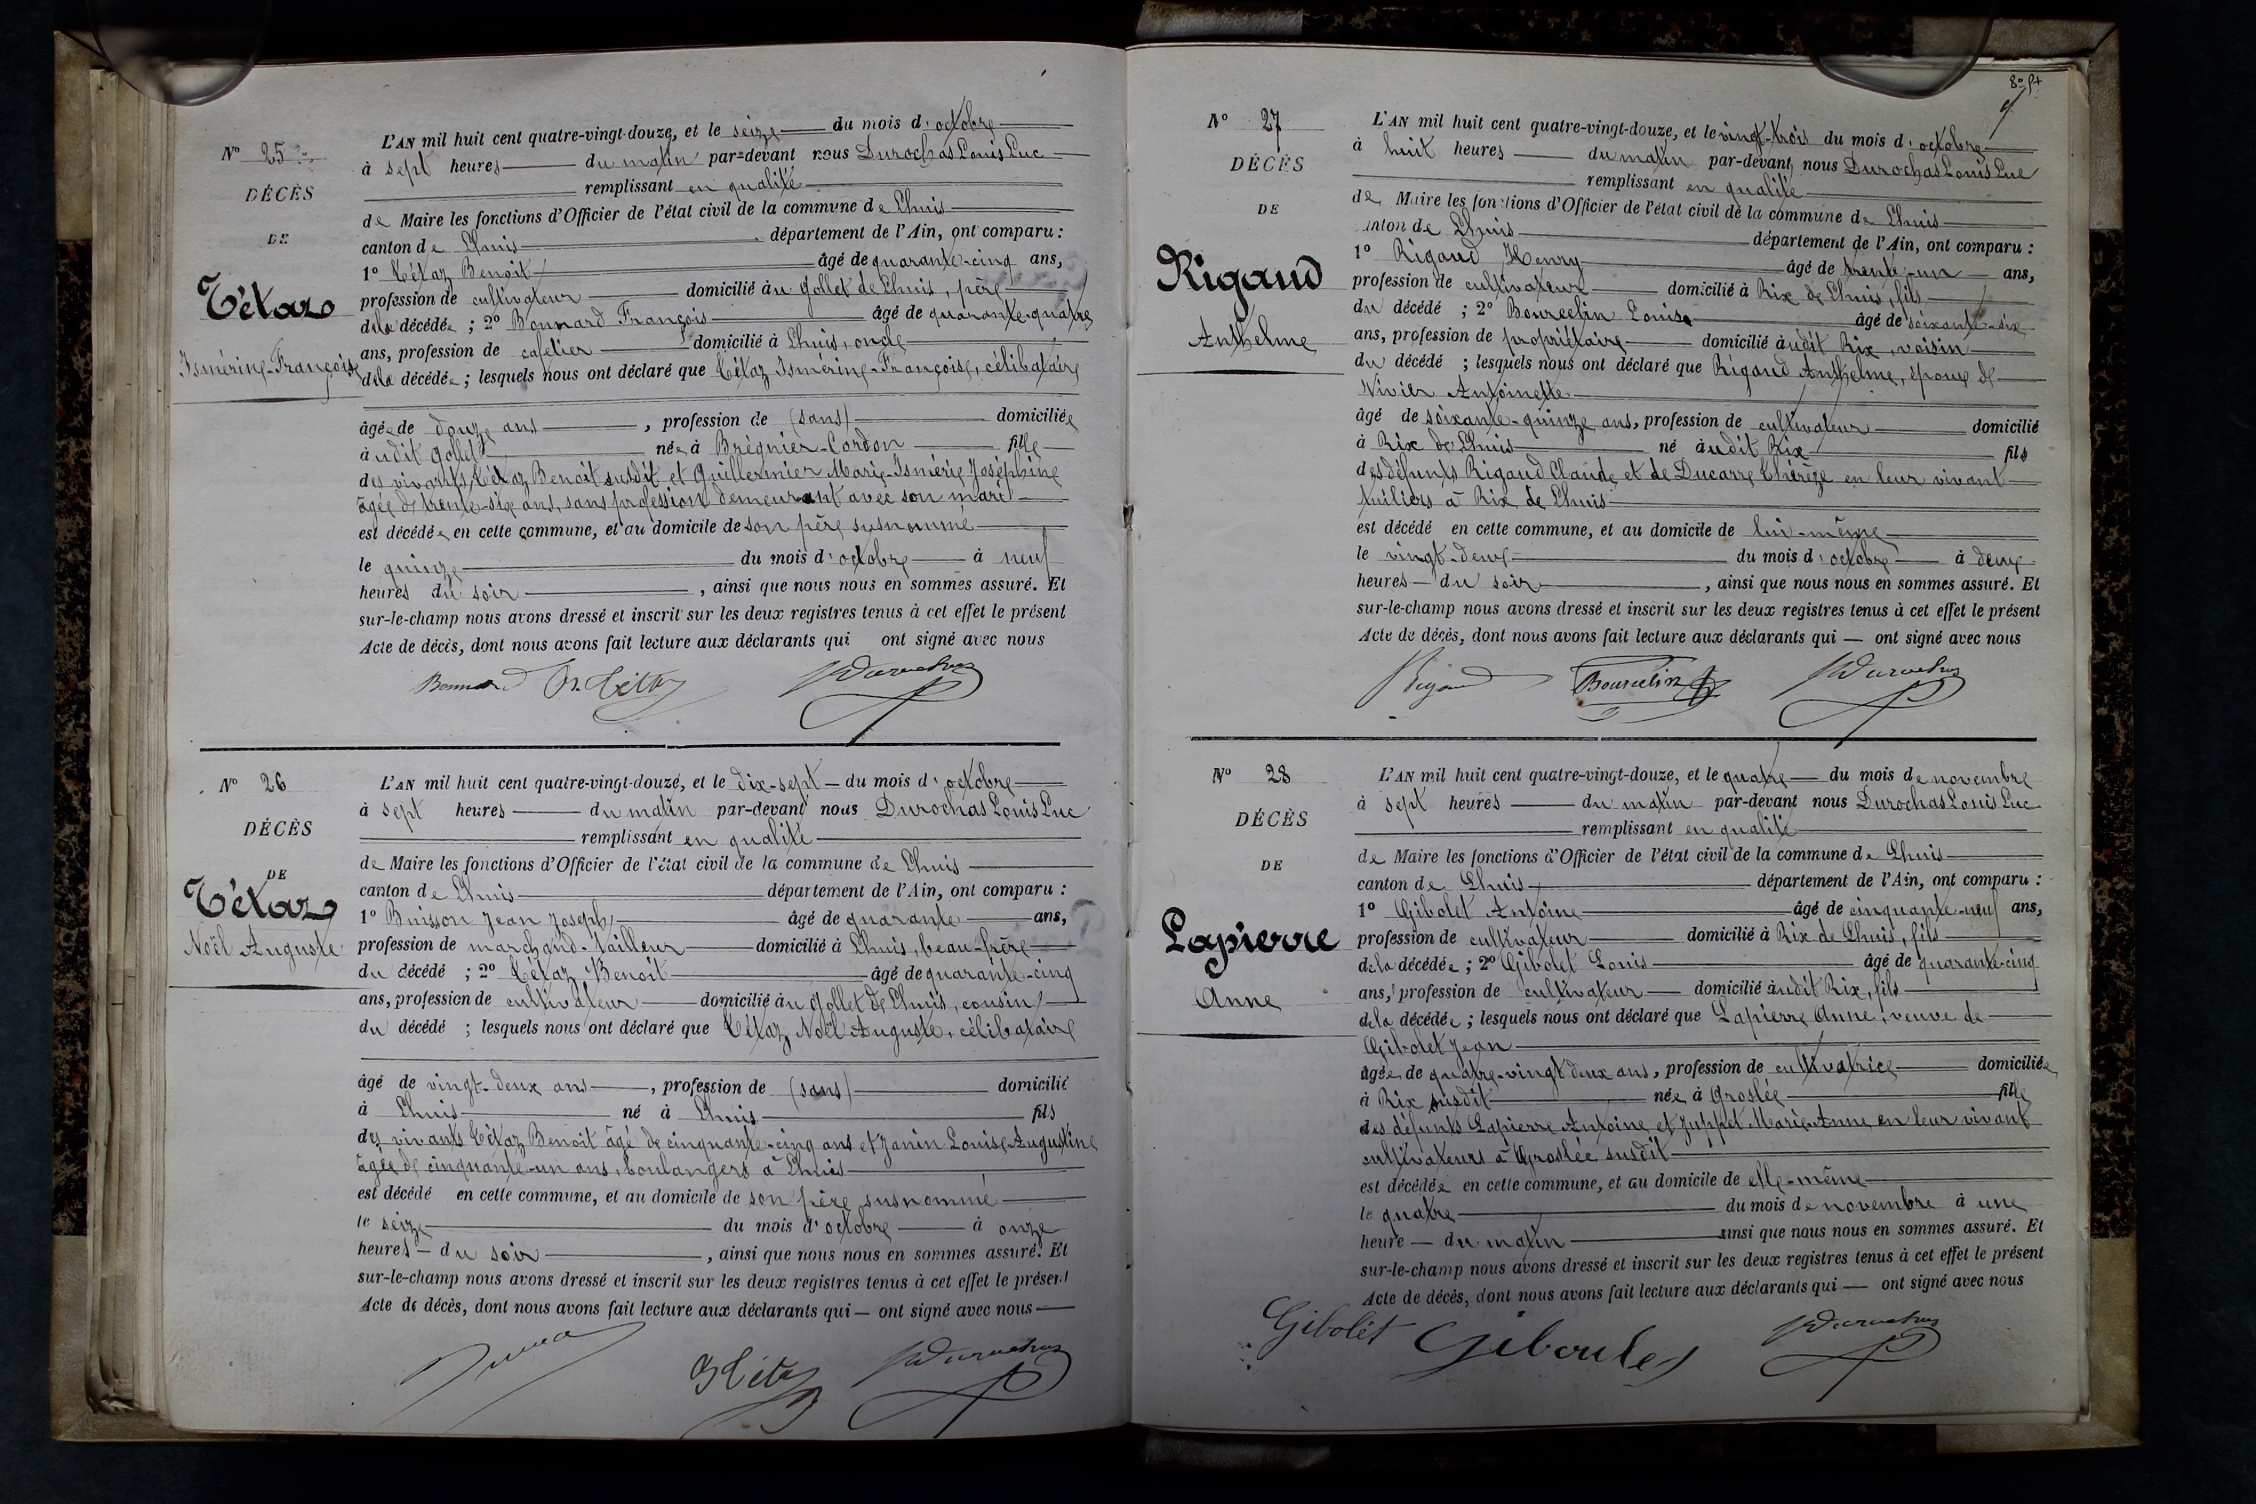 Nº 25
DÉCÈS
DE
Tétaz
Ismérine-Françoise
L'AN mil huit cent quatre-vingt-douze, et le seize du mois d'octobre
à sept heures du matin par-devant nous Durochas Louis Luc
remplissant en qualité
de Maire les fonctions d'Officier de l'état civil de la commune de Lhuis
canton de Lhuis département de l'Ain, ont comparu :
1º Tétaz Benoit âgé de quarante-cinq ans,
profession de cultivateur domicilié au Gollet de Lhuis, père
de la décédée ; 2º Bonnard François âgé de quarante-quatre
ans, profession de cafetier domicilié à Lhuis, oncle
de la décédée ; lesquels nous ont déclaré que Tétaz Ismérine-Françoise, célibataire
âgée de douze ans, profession de (sans) domiciliée
audit Gollet née à Brégnier-Cordon fille
des vivants Tétaz Benoit susdit et Guillerminer Marie-Ismérie Joséphine
âgée de trente-six ans, sans profession demeurant avec son mari
est décédée en cette commune, et au domicile de son père susnommé
le quinze du mois d'octobre à neuf
heures du soir, ainsi que nous nous en sommes assuré. Et
sur-le-champ nous avons dressé et inscrit sur les deux registres tenus à cet effet le présent
Acte de décès, dont nous avons fait lecture aux déclarants qui ont signé avec nous
Bonnard B. Tétaz Durochas
Nº 26
DÉCÈS
DE
Tétaz
Noël Auguste
L'AN mil huit cent quatre-vingt-douze, et le dix-sept du mois d'octobre
à sept heures du matin par-devant nous Durochas Louis Luc
remplissant en qualité
de Maire les fonctions d'Officier de l'état civil de la commune de Lhuis
canton de Lhuis département de l'Ain, ont comparu :
1º Buisson Jean Joseph âgé de quarante ans,
profession de marchand-tailleur domicilié à Lhuis, beau-frère
du décédé ; 2º Tétaz Benoit âgé de quarante-cinq
ans, profession de cultivateur domicilié au Gollet de Lhuis, cousin
du décédé ; lesquels nous ont déclaré que Tétaz Noël Auguste, célibataire
âgé de vingt-deux ans, profession de (sans) domicilié
à Lhuis né à Lhuis fils
des vivants Tétaz Benoit âgé de cinquante-cinq ans et Janin Louise-Augustine
âgée de cinquante-un ans, boulangers à Lhuis
est décédé en cette commune, et au domicile de son père susnommé
le seize du mois d'octobre à onze
heures du soir, ainsi que nous nous en sommes assuré. Et
sur-le-champ nous avons dressé et inscrit sur les deux registres tenus à cet effet le présent
Acte de décès, dont nous avons fait lecture aux déclarants qui — ont signé avec nous
B Tétaz Durochas
Nº 27
DÉCÈS
DE
Rigaud
Anthelme
L'AN mil huit cent quatre-vingt-douze, et le vingt-trois du mois d'octobre
à huit heures du matin par-devant nous Durochas Louis Luc
remplissant en qualité
de Maire les fonctions d'Officier de l'état civil de la commune de Lhuis
canton de Lhuis département de l'Ain, ont comparu :
1º Rigaud Henry âgé de trente-un ans,
profession de cultivateur domicilié à Rix de Lhuis, fils
du décédé ; 2º Bourcelin Louis âgé de soixante-six
ans, profession de propriétaire domicilié audit Rix, voisin
du décédé ; lesquels nous ont déclaré que Rigaud Anthelme, époux de
Vivier Antoinette
âgé de soixante-quinze ans, profession de cultivateur domicilié
à Rix de Lhuis né audit Rix fils
des défunts Rigaud Claude et de Ducarre Thérèze en leur vivant
tuiliers à Rix de Lhuis
est décédé en cette commune, et au domicile de lui-même
le vingt-deux du mois d'octobre à deux
heures du soir, ainsi que nous nous en sommes assuré. Et
sur-le-champ nous avons dressé et inscrit sur les deux registres tenus à cet effet le présent
Acte de décès, dont nous avons fait lecture aux déclarants qui — ont signé avec nous
Rigaud Bourcelin Durochas
Nº 28
DÉCÈS
DE
Lapierre
Anne
L'AN mil huit cent quatre-vingt-douze, et le quatre du mois de novembre
à sept heures du matin par-devant nous Durochas Louis Luc
remplissant en qualité
de Maire les fonctions d'Officier de l'état civil de la commune de Lhuis
canton de Lhuis département de l'Ain, ont comparu :
1º Gibolet Antoine âgé de cinquante-neuf ans,
profession de cultivateur domicilié à Rix de Lhuis, fils
de la décédée ; 2º Gibolet Louis âgé de quarante-cinq
ans, profession de cultivateur domicilié audit Rix, fils
de la décédée ; lesquels nous ont déclaré que Lapierre Anne, veuve de
Gibolet Jean
âgée de quatre-vingt deux ans, profession de cultivatrice domiciliée
à Rix susdit née à Groslée fille
des défunts Lapierre Antoine et Juppet Marie-Anne en leur vivant
cultivateurs à Groslée susdit
est décédée en cette commune, et au domicile de elle-même
le quatre du mois de novembre à une
heure du matin ainsi que nous nous en sommes assuré. Et
sur-le-champ nous avons dressé et inscrit sur les deux registres tenus à cet effet le présent
Acte de décès, dont nous avons fait lecture aux déclarants qui — ont signé avec nous
Gibolet Giboulet Durochas